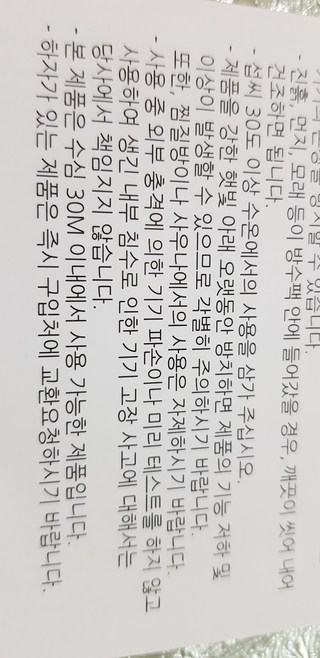 방지할 수 있습니다.
- 진흙, 먼지, 모래 등이 방수팩 안에 들어갔을 경우, 깨끗이 씻어 내어
건조하면 됩니다.
- 섭씨 30도 이상 수온에서의 사용을 삼가 주십시오.
- 제품을 강한 햇빛 아래 오랫동안 방치하면 제품의 기능 저하 및
이상이 발생할 수 있으므로 각별히 주의하시기 바랍니다.
또한, 찜질방이나 사우나에서의 사용은 자제하시기 바랍니다.
- 사용 중 외부 충격에 의한 기기 파손이나 미리 테스트를 하지 않고
사용하여 생긴 내부 침수로 인한 기기 고장 사고에 대해서는
당사에서 책임지지 않습니다.
- 본 제품은 수심 30M 이내에서 사용 가능한 제품입니다.
- 하자가 있는 제품은 즉시 구입처에 교환요청하시기 바랍니다.